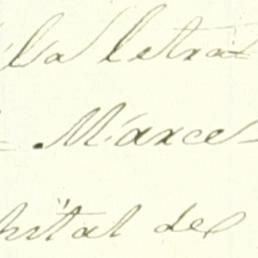 la letra
Marce
hital de